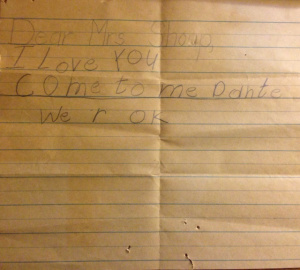 Dear Mrs Shoup,
I Love YOU
COme to me Dante
We r OK